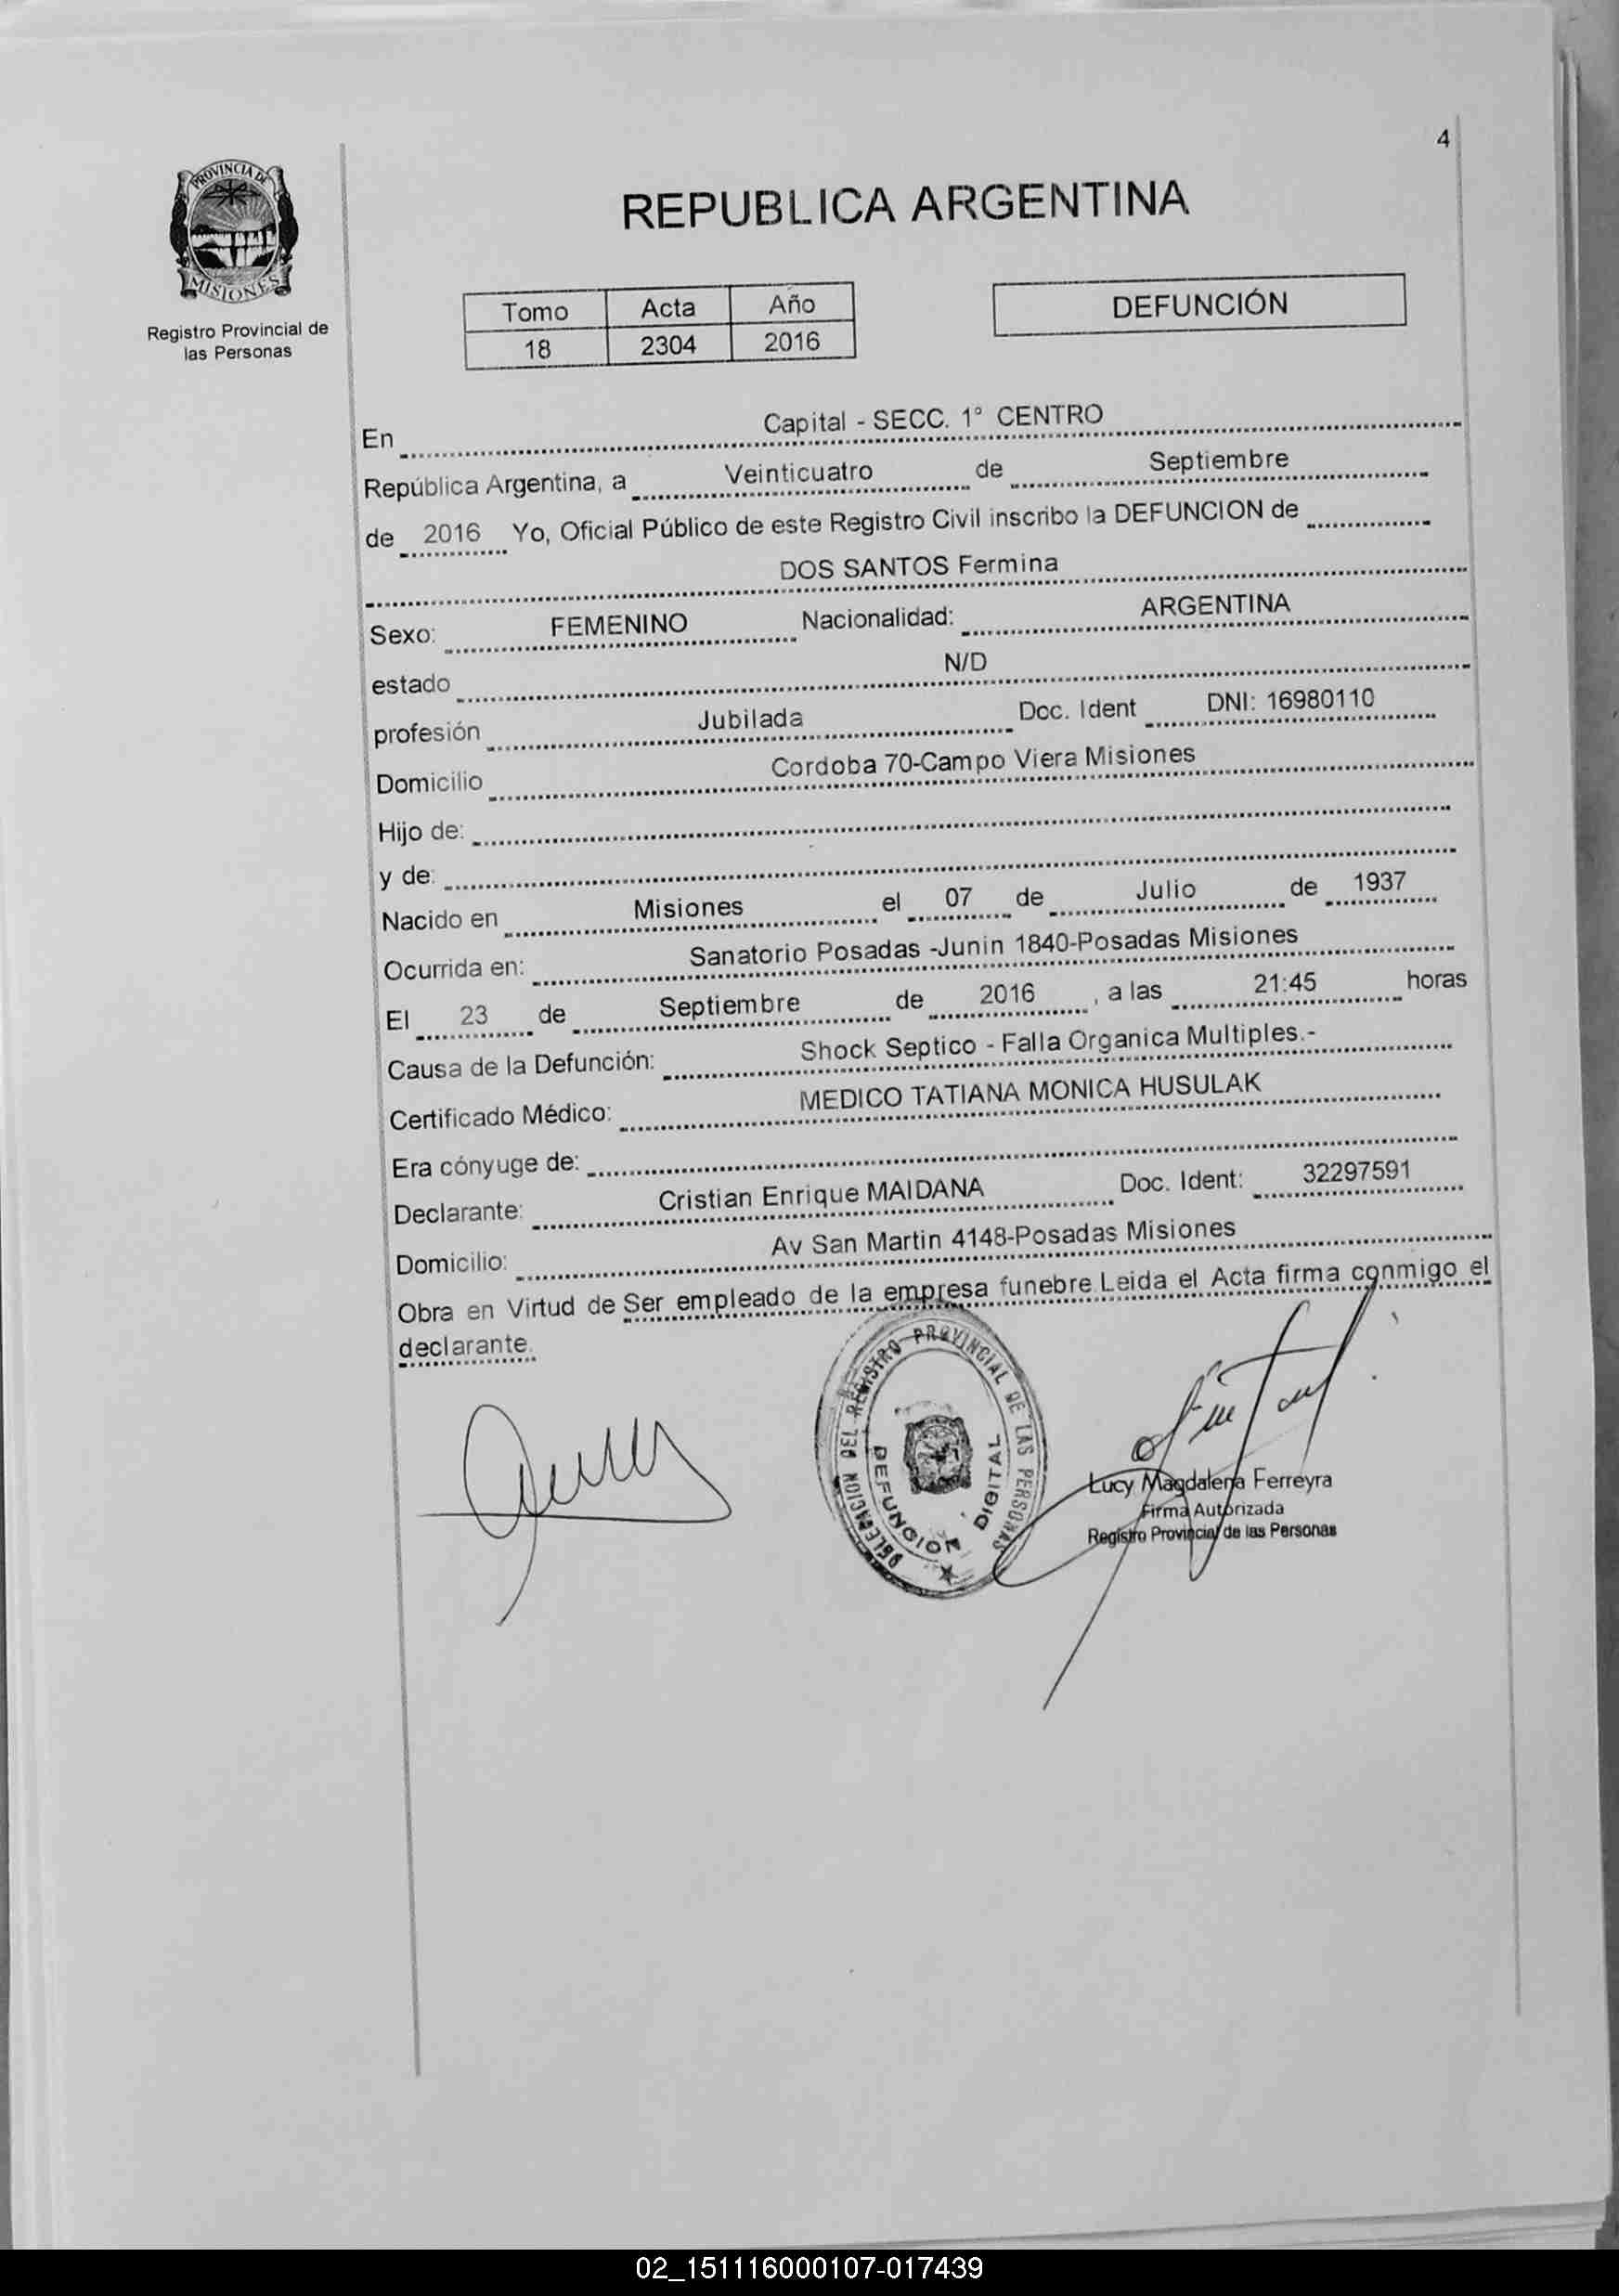 4
PROVINCIA DE
MISIONES
Registro Provincial de
las Personas
REPUBLICA ARGENTINA
Tomo Acta Año
18 2304 2016
DEFUNCIÓN
En Capital - SECC. 1° CENTRO
República Argentina, a Veinticuatro de Septiembre
de 2016 Yo, Oficial Público de este Registro Civil inscribo la DEFUNCION de
DOS SANTOS Fermina
Sexo: FEMENINO Nacionalidad: ARGENTINA
estado N/D
profesión Jubilada Doc. Ident DNI: 16980110
Domicilio Cordoba 70-Campo Viera Misiones
Hijo de:
y de:
Nacido en Misiones el 07 de Julio de 1937
Ocurrida en: Sanatorio Posadas -Junin 1840-Posadas Misiones
El 23 de Septiembre de 2016 , a las 21:45 horas
Causa de la Defunción: Shock Septico - Falla Organica Multiples.-
Certificado Médico: MEDICO TATIANA MONICA HUSULAK
Era cónyuge de:
Declarante: Cristian Enrique MAIDANA Doc. Ident: 32297591
Domicilio: Av San Martin 4148-Posadas Misiones
Obra en Virtud de Ser empleado de la empresa funebre Leida el Acta firma conmigo el
declarante.
DELEGACION DEL REGISTRO PROVINCIAL DE LAS PERSONAS
DEFUNCION DIGITAL
Lucy Magdalena Ferreyra
Firma Autorizada
Registro Provincial de las Personas
02_151116000107-017439